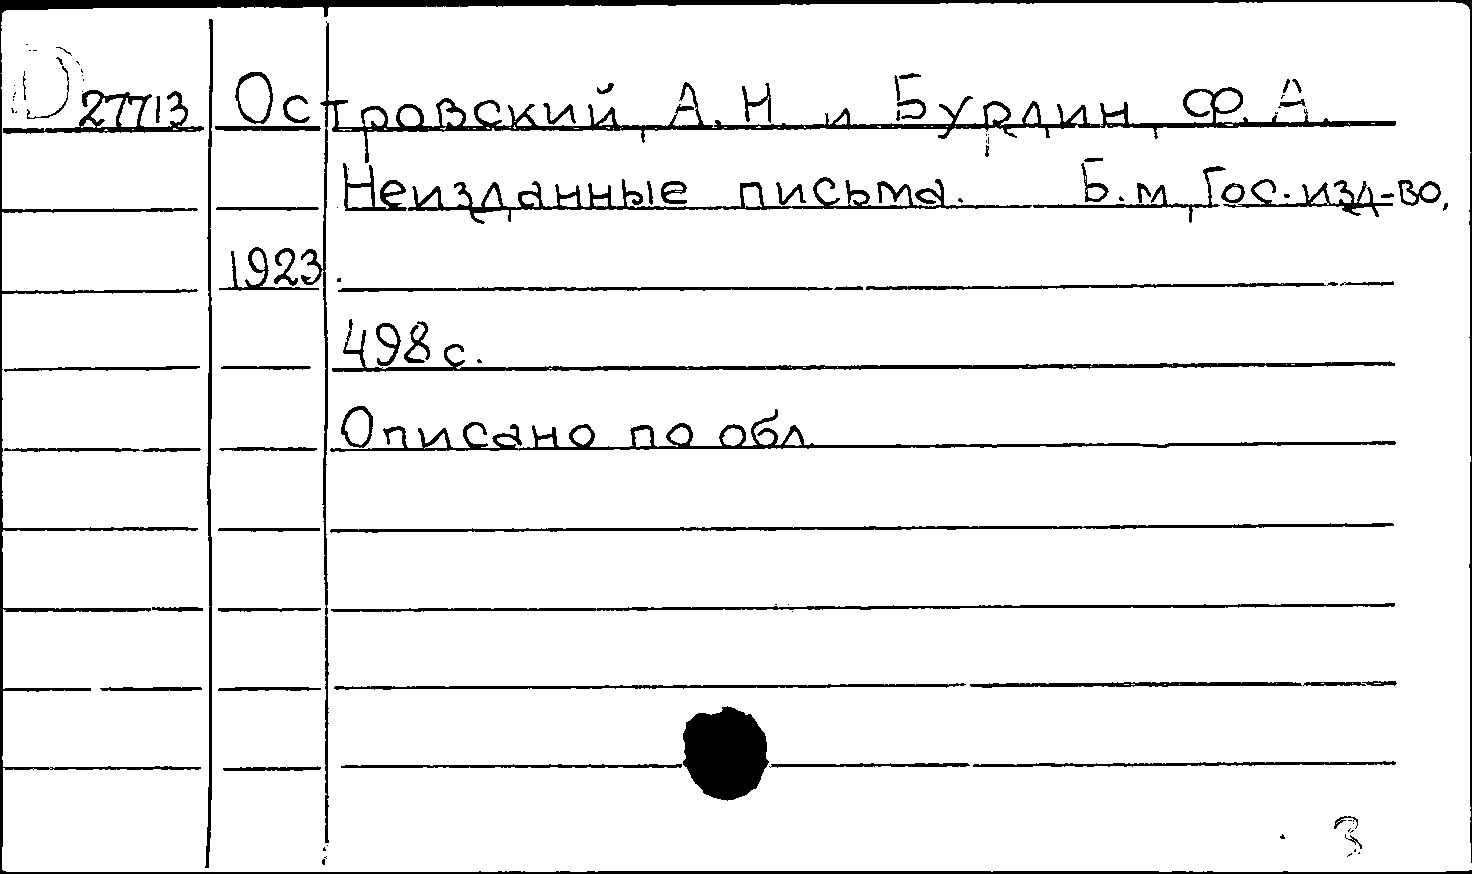 D 27713 Островский, А. Н. и Бурдин, Ф. А.
Неизданные письма. Б. м., Гос. изд-во,
1923.
498 с.
Описано по обл.
3